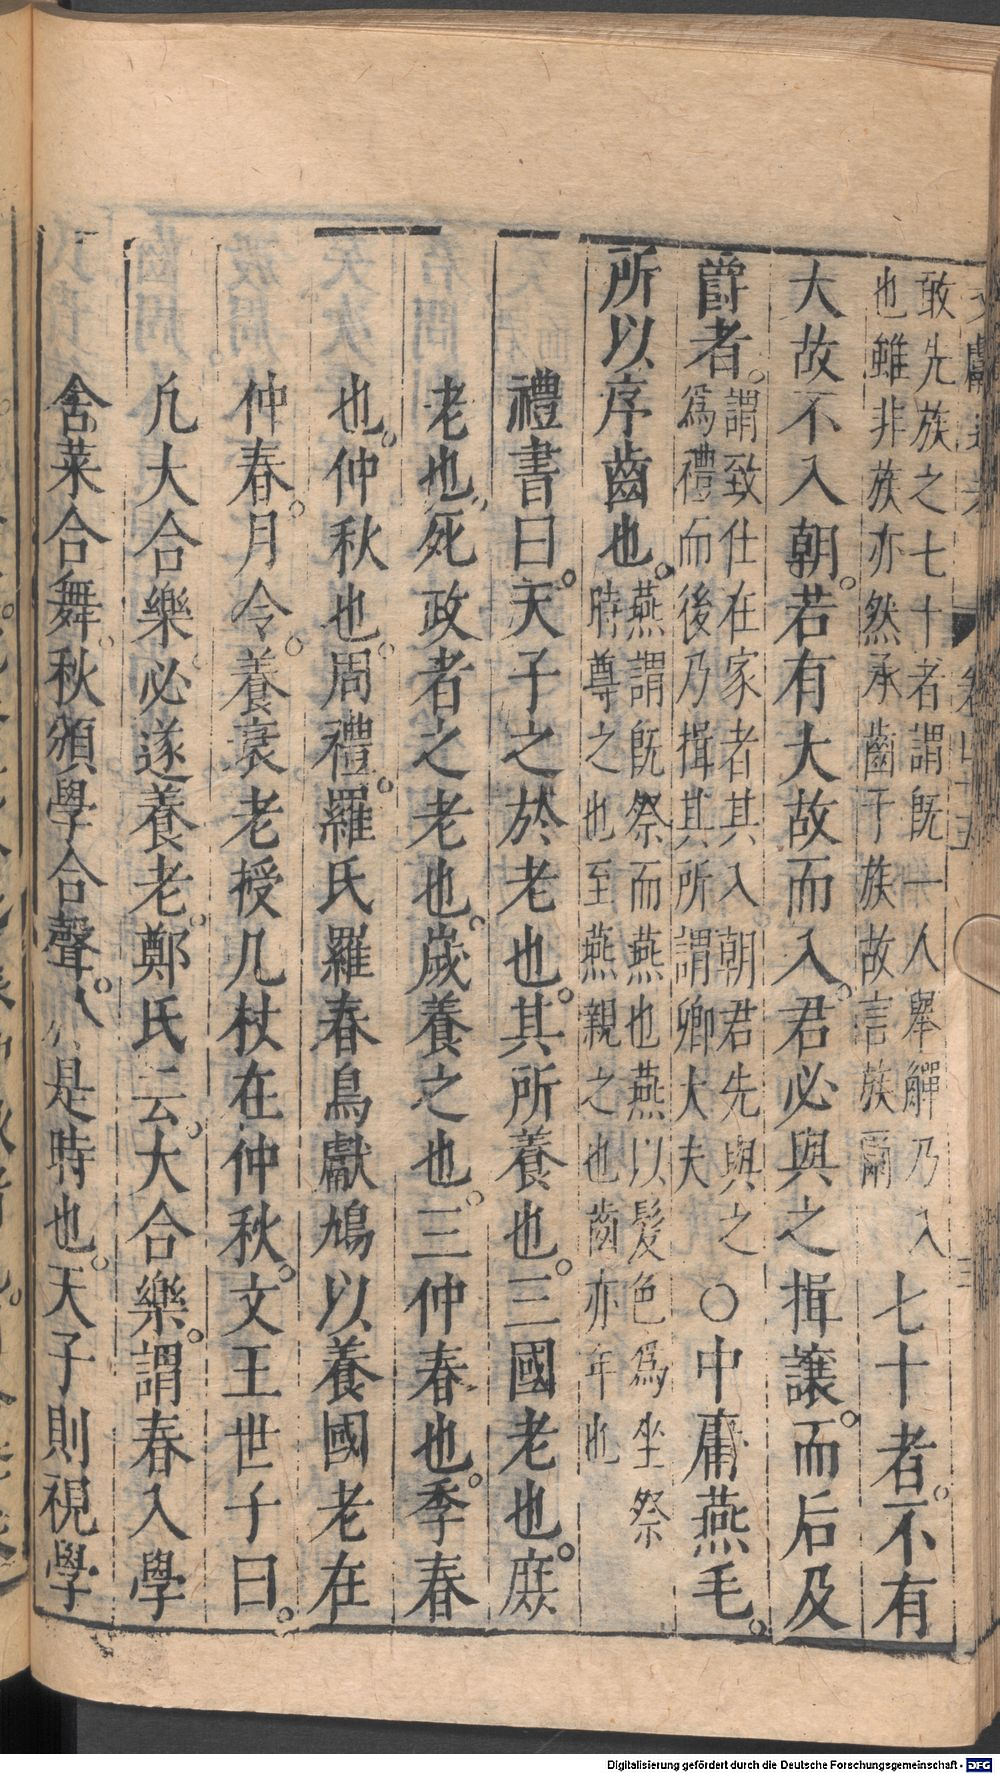 敢先族之七十者謂旣一人舉觶乃入
也雖非族亦然承齒于族故言族爾
七十者。不有
大故不入朝。若有大故而入。君必與之揖讓。而后及
爵者。
謂致仕在家者其入朝君先與之
爲禮而後乃揖其所謂卿大夫
○中庸燕毛。
所以序齒也。
燕謂旣祭而燕也燕以髮色爲坐祭
時尊之也至燕親之也齒亦年也
禮書曰。天子之於老也。其所養也。三國老也。庶
老也。死政者之老也。歲養之也。三仲春也。季春
也。仲秋也。周禮。羅氏羅春鳥獻鳩以養國老在
仲春。月令。養衰老授几杖在仲秋。文王世子曰。
凡大合樂必遂養老。鄭氏云。大合樂。謂春入學
舍菜合舞。秋頒學合聲。是時也。天子則視學
Digitalisierung gefördert durch die Deutsche Forschungsgemeinschaft - DFG